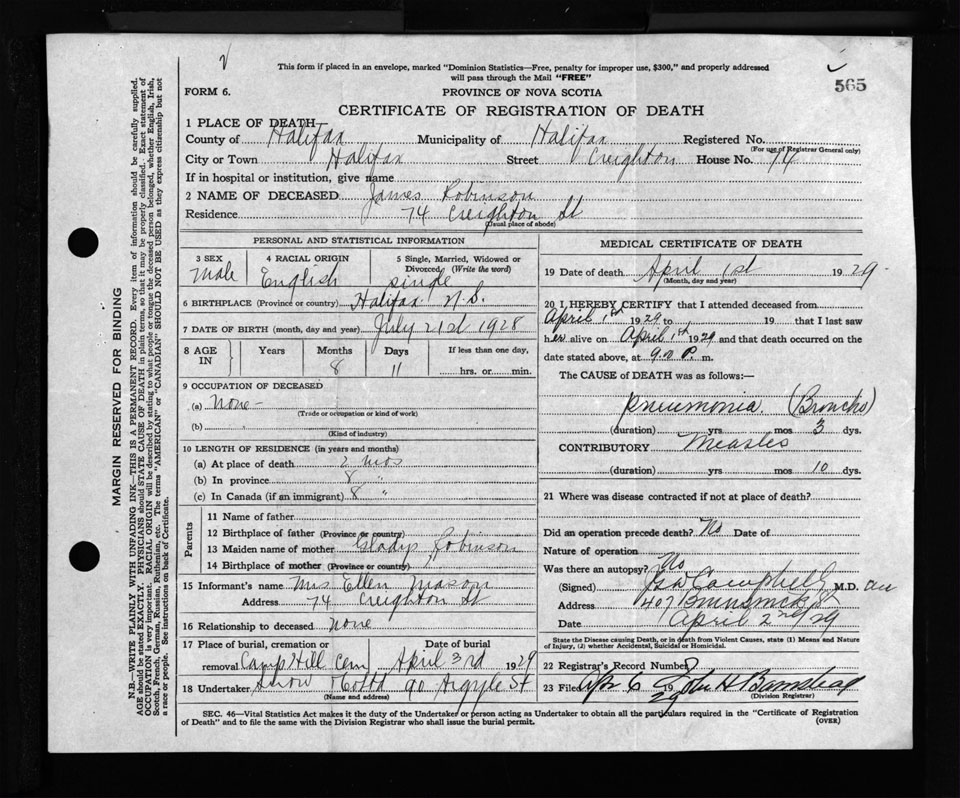 This form if placed in an envelope, marked "Dominion Statistics—Free, penalty for improper use, $300," and properly addressed
will pass through the Mail "FREE"
565
FORM 6.
PROVINCE OF NOVA SCOTIA
CERTIFICATE OF REGISTRATION OF DEATH
1 PLACE OF DEATH
County of Halifax Municipality of Halifax Registered No.
(For use of Registrar General only)
City or Town Halifax Street Creighton House No. 74
If in hospital or institution, give name
2 NAME OF DECEASED James Robinson
Residence 74 Creighton St
(Usual place of abode)
PERSONAL AND STATISTICAL INFORMATION
3 SEX 4 RACIAL ORIGIN 5 Single, Married, Widowed or
Divorced (Write the word)
Male English single
6 BIRTHPLACE (Province or country) Halifax N.S.
7 DATE OF BIRTH (month, day and year) July 21st 1928
8 AGE IN Years Months Days If less than one day,
8 11 hrs. or min.
9 OCCUPATION OF DECEASED
(a) None
(Trade or occupation or kind of work)
(b)
(Kind of industry)
10 LENGTH OF RESIDENCE (in years and months)
(a) At place of death 2 mos
(b) In province 8 "
(c) In Canada (if an immigrant) 8 "
Parents
11 Name of father
12 Birthplace of father (Province or country)
13 Maiden name of mother Gladys Robinson
14 Birthplace of mother (Province or country)
15 Informant's name Mrs Ellen Mason
Address 74 Creighton St
16 Relationship to deceased none
17 Place of burial, cremation or Date of burial
removal Camp Hill Cem April 3rd 1929
18 Undertaker Snow & Co Ltd 90 Argyle St
(Name and address)
MEDICAL CERTIFICATE OF DEATH
19 Date of death April 1st 1929
(Month, day and year)
20 I HEREBY CERTIFY that I attended deceased from
April 1st 1929 to 19 that I last saw
h alive on April 1st 1929 and that death occurred on the
date stated above, at P. m.
The CAUSE of DEATH was as follows:—
Pneumonia (Broncho)
(duration) yrs mos 3 dys.
CONTRIBUTORY Measles
(duration) yrs mos 10 dys.
21 Where was disease contracted if not at place of death?
Did an operation precede death? No Date of
Nature of operation
Was there an autopsy? No
(Signed) Campbell M.D.
Address 407 Brunswick St
Date April 2nd /29
State the Disease causing Death, or in death from Violent Causes, state (1) Means and Nature
of Injury, (2) whether Accidental, Suicidal or Homicidal.
22 Registrar's Record Number
23 Filed Apr 6 1929 John H Barnstead
(Division Registrar)
SEC. 46—Vital Statistics Act makes it the duty of the Undertaker or person acting as Undertaker to obtain all the particulars required in the "Certificate of Registration
of Death" and to file the same with the Division Registrar who shall issue the burial permit. (OVER)
MARGIN RESERVED FOR BINDING
N.B.—WRITE PLAINLY WITH UNFADING INK—THIS IS A PERMANENT RECORD. Every item of information should be carefully supplied.
AGE should be stated EXACTLY. PHYSICIANS should STATE CAUSE OF DEATH in plain terms, so that it may be properly classified. Exact statement of
OCCUPATION is very important. RACIAL ORIGIN will be described by stating to what people or tongue the deceased person belonged, whether English, Irish,
Scotch, French, German, Russian, Ruthenian, etc. The terms "AMERICAN" or "CANADIAN" SHOULD NOT BE USED as they express citizenship but not
a race or people. See instructions on back of Certificate.